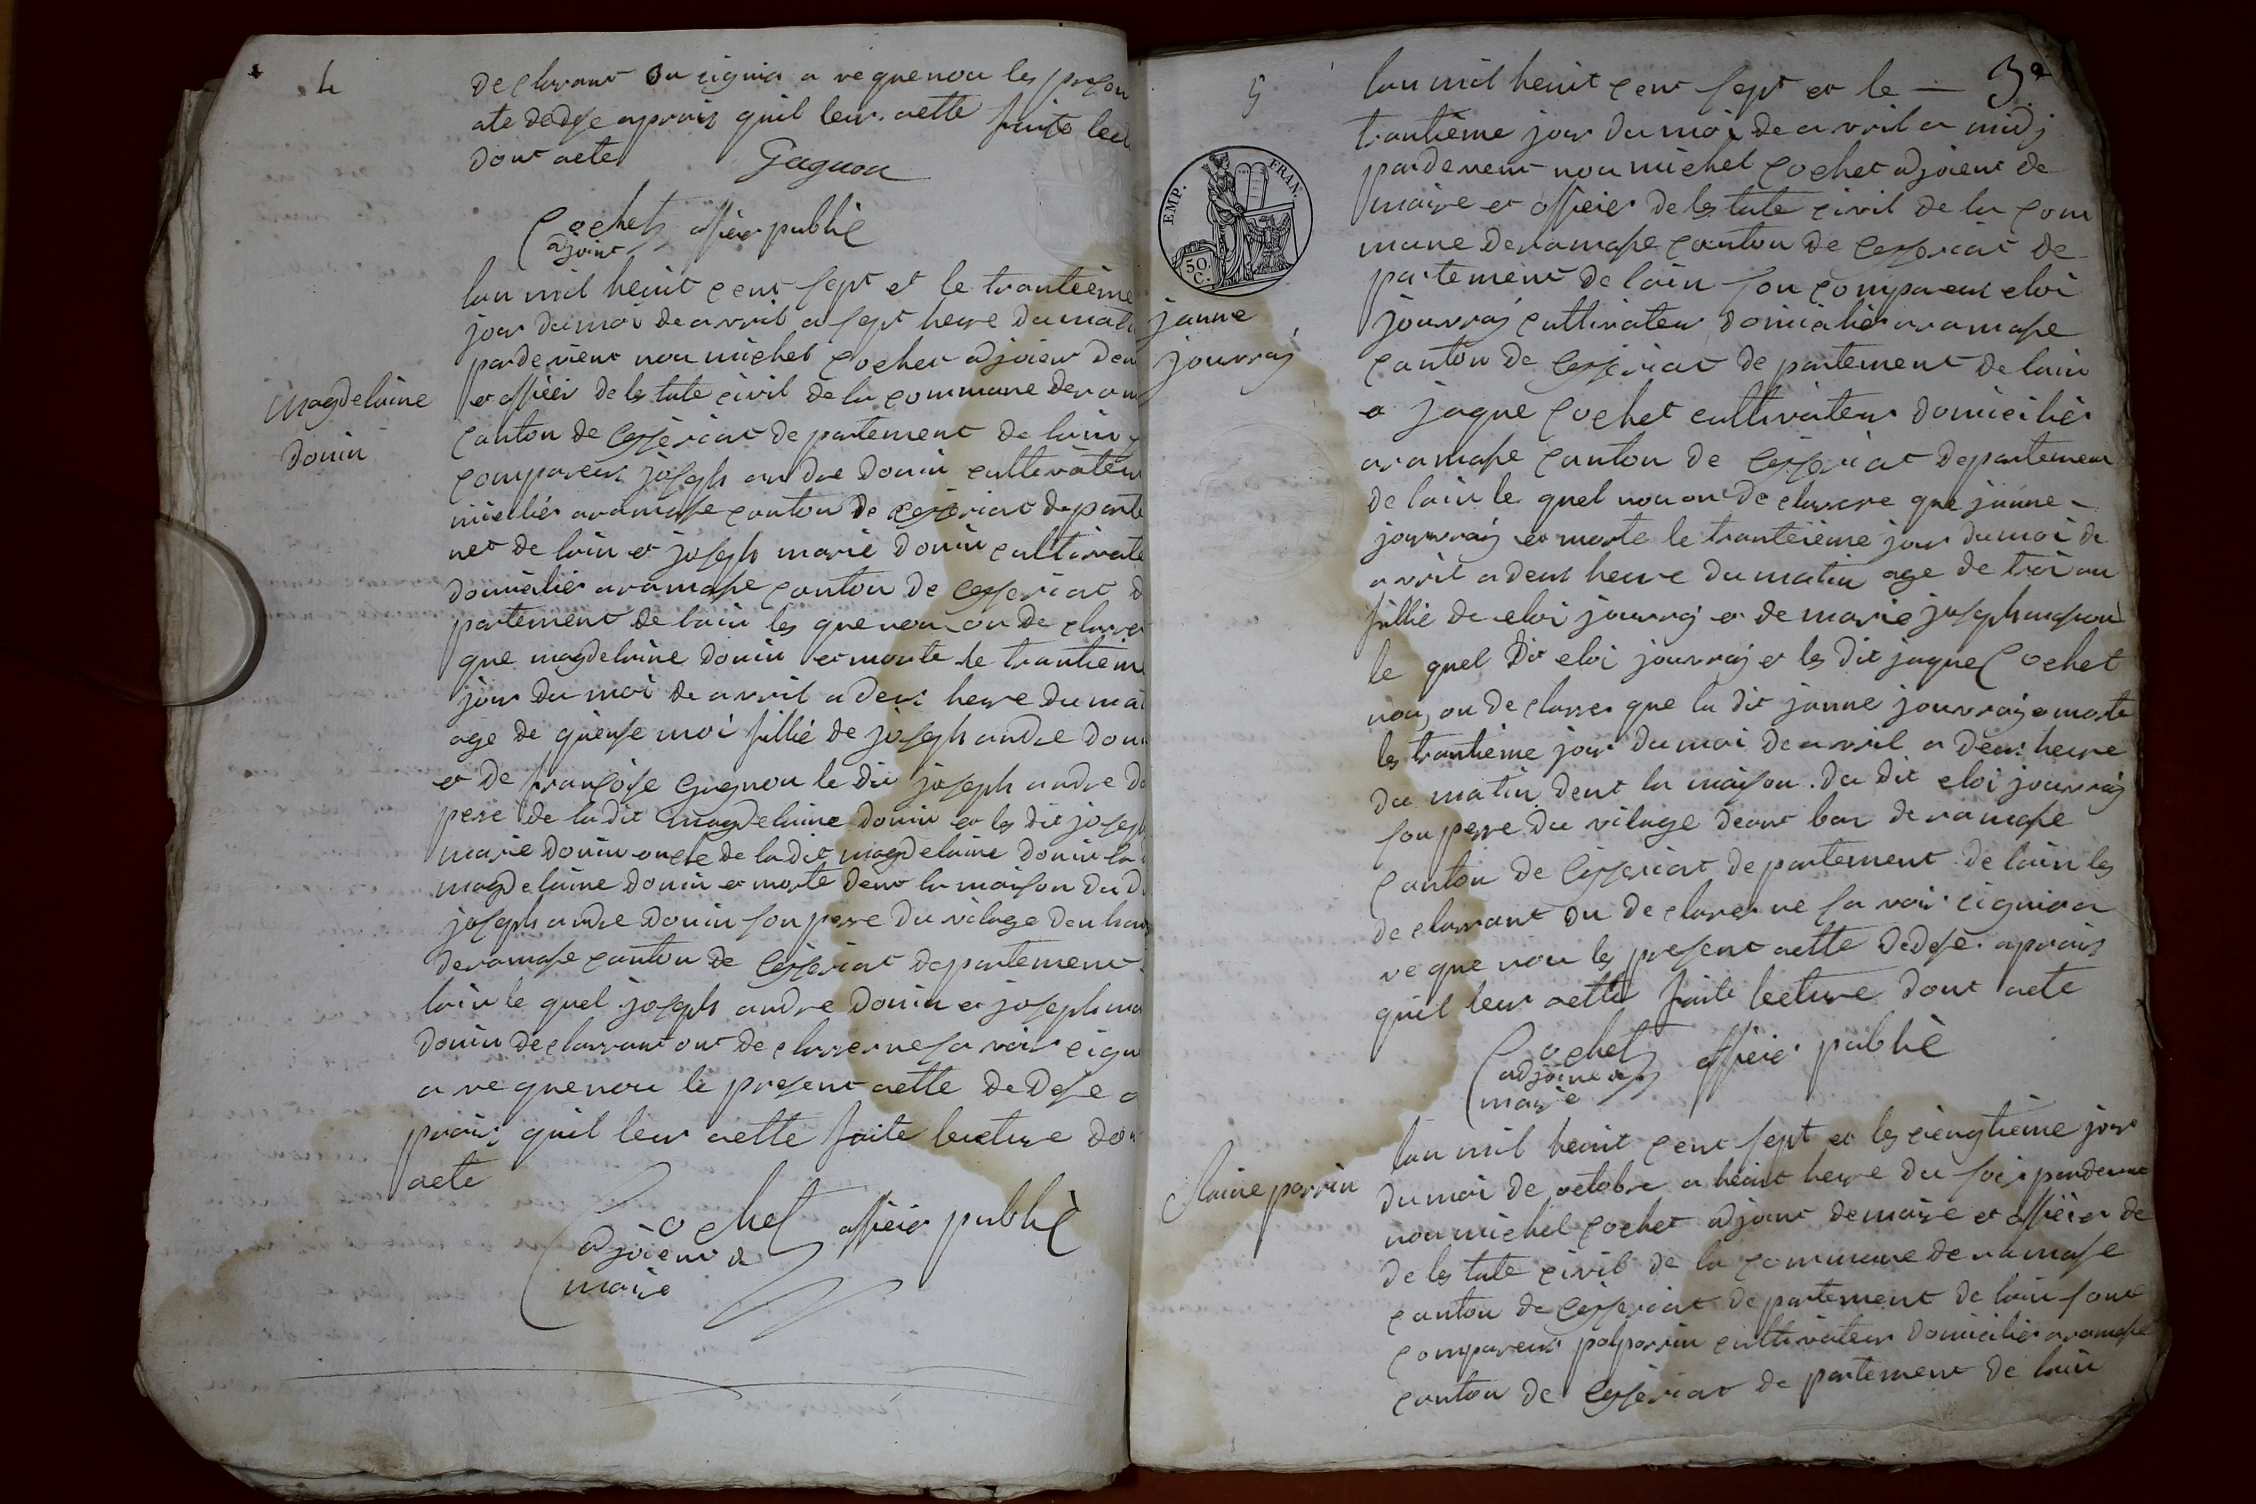 4
declarant on cignia a reque nou les preson
ate dedse aprais quil leur aette faite lect
dont acte Gagnon
Cochet officier publiè
adjoint
lan mil heuit cent sept et le trantième
jour du moi de avril a sept heure du mati
pardevent nou michel Cochet adjoient de m
et officier de les tate civil de la commune de ram
Magdelaine
Donin
canton de Cesseriat departement de lain
comparent joseph andre donin cultivateur
micilier aramase canton de Cesseriat departe
net de lain et joseph marie donin cultivate
domicilier aramase canton de Cesseriat d
partement de lain les que nou on declarer
que magdelaine donin et morte le trantieme
jour du moi de avril a deu heure du mat
age de quense moi fillie de joseph andre don
et de françoise Gagnon le dit joseph andre do
pere de la dit magdelaine donin et les dit joseph
marie donin oncle de la dit magdelaine donin la
magdelaine donin et morte dent la maison du d
joseph andre donin son pere du vilage den hau
deramase canton de Cesseriat departement
lain le quel joseph andre donin et joseph ma
donin declarrant ont declarrer ne sa voir cign
a reque nou le present aette de Dese a
prais quil leur aette faite lecture don
acte
Cochet officier publiè
adjoient de
maire
5
3e
lan mil heuit cent sept et le —
trantième jour du moi de avril a midj
pardevent nou michel Cochet adjoient de
maire et officier de les tate civil de la com
mune deramase canton de Cesseriat de
EMP. FRAN.
50. C.
partement de lain son comparent eloi
janne
jouvraj
jouvraj cultivateur domicilier aramase
canton de Cesseriat departement de lain
e jaque Cochet cultivateur domicilier
aramase canton de Cesseriat departement
de lain le quel nou on declarere que janne
jouvraj et morte le trantèième jour du moi de
avril a deu heure du matin age de troi an
fillie de eloi jouvraj et de marie joseph
le quel dit eloi jouvraj et les dit jaque Cochet
nou on declarrer que la dit janne jouvraj e morte
les trantième jour du moi de avril a deu heure
du matin dent la maison du dit eloi jouvraj
son pere du vilage deant bar deramase
canton de Cesseriat departement de lain les
declarrant on declarer ne sa voir cignioa
reque nou les present aette dedese aprais
quil leur aette faite lecture dont acte
Cochet officier publiè
adjoient de
maire
Claine parrin
lan mil heuit cent sept et les viengtième jour
du moi de octobre a heuit heure du soir pardevent
nou michel Cochet adjoint de maire et officier de
de les tate civil de la commune deramase
canton de Cesseriat departement de lain sont
comparent polparrin cultivateur domicilier aramase
canton de Cesseriat departement de lain